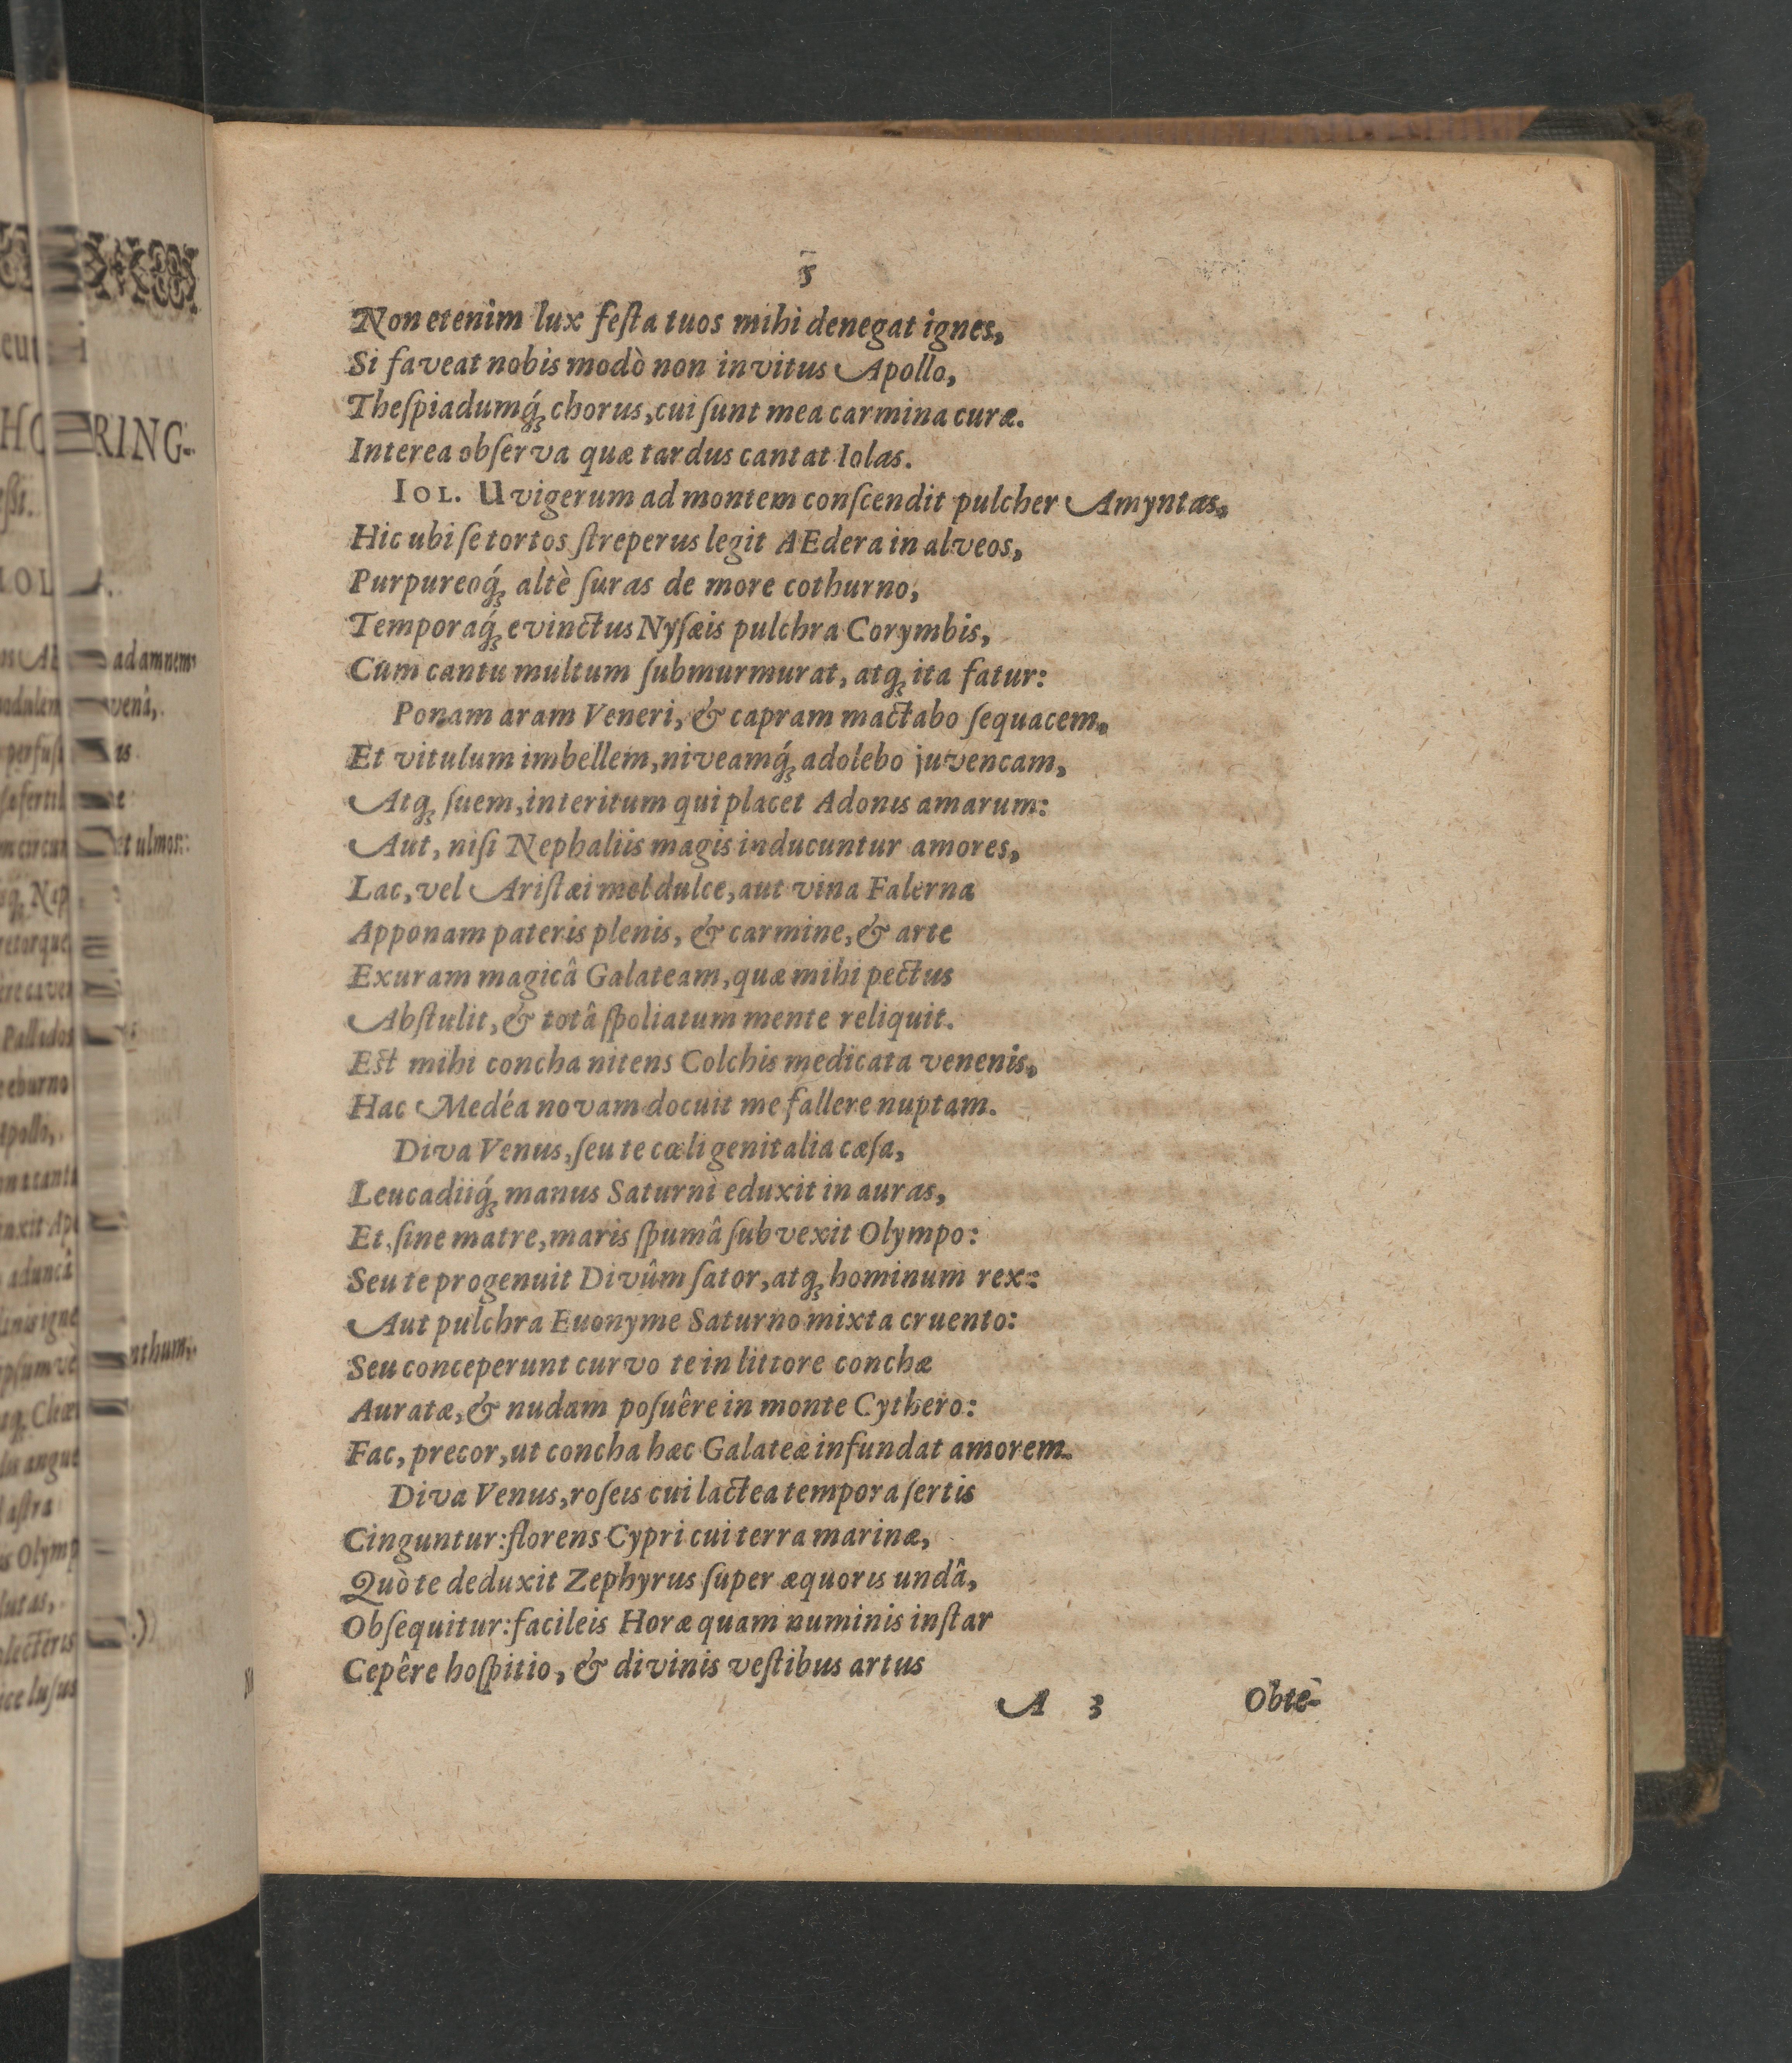 5
Non etenim lux feſta tuos mihi denegat ignes,
Si faveat nobis modò non invitus Apollo,
Theſpiadumq́ꝫ chorus, cui ſunt mea carmina curæ.
Interea obſerva quæ tardus cantat Iolas.
IOL. Uvigerum ad montem conſcendit pulcher Amyntas,
Hic ubi ſe tortos ſtreperus legit AEdera in alveos,
Purpureoq́ꝫ altè ſuras de more cothurno,
Temporaq́ꝫ evinctus Nyſæis pulchra Corymbis,
Cum cantu multum ſubmurmurat, atqꝫ ita fatur:
Ponam aram Veneri, & capram mactabo ſequacem,
Et vitulum imbellem, niveamq́ꝫ adolebo juvencam,
Atqꝫ ſuem, interitum qui placet Adonis amarum:
Aut, niſi Nephaliis magis inducuntur amores,
Lac, vel Ariſtæi mel dulce, aut vina Falerna
Apponam pateris plenis, & carmine, & arte
Exuram magicâ Galateam, quæ mihi pectus
Abſtulit, & totâ ſpoliatum mente reliquit.
Eſt mihi concha nitens Colchis medicata venenis,
Hac Medéa novam docuit me fallere nuptam.
Diva Venus, ſeu te cœli genitalia cæſa,
Leucadiiq́ꝫ manus Saturni eduxit in auras,
Et ſine matre, maris ſpumâ ſubvexit Olympo:
Seu te progenuit Divûm ſator, atqꝫ hominum rex:
Aut pulchra Euonyme Saturno mixta cruento:
Seu conceperunt curvo te in littore conchæ
Auratæ, & nudam poſuêre in monte Cythero:
Fac, precor, ut concha hæc Galateæ infundat amorem.
Diva Venus, roſeis cui lactea tempora ſertis
Cinguntur: florens Cypri cui terra marinæ,
Quò te deduxit Zephyrus ſuper æquoris undâ,
Obſequitur: facileis Horæ quam numinis inſtar
Cepêre hoſpitio, & divinis veſtibus artus
A 3 Obte-